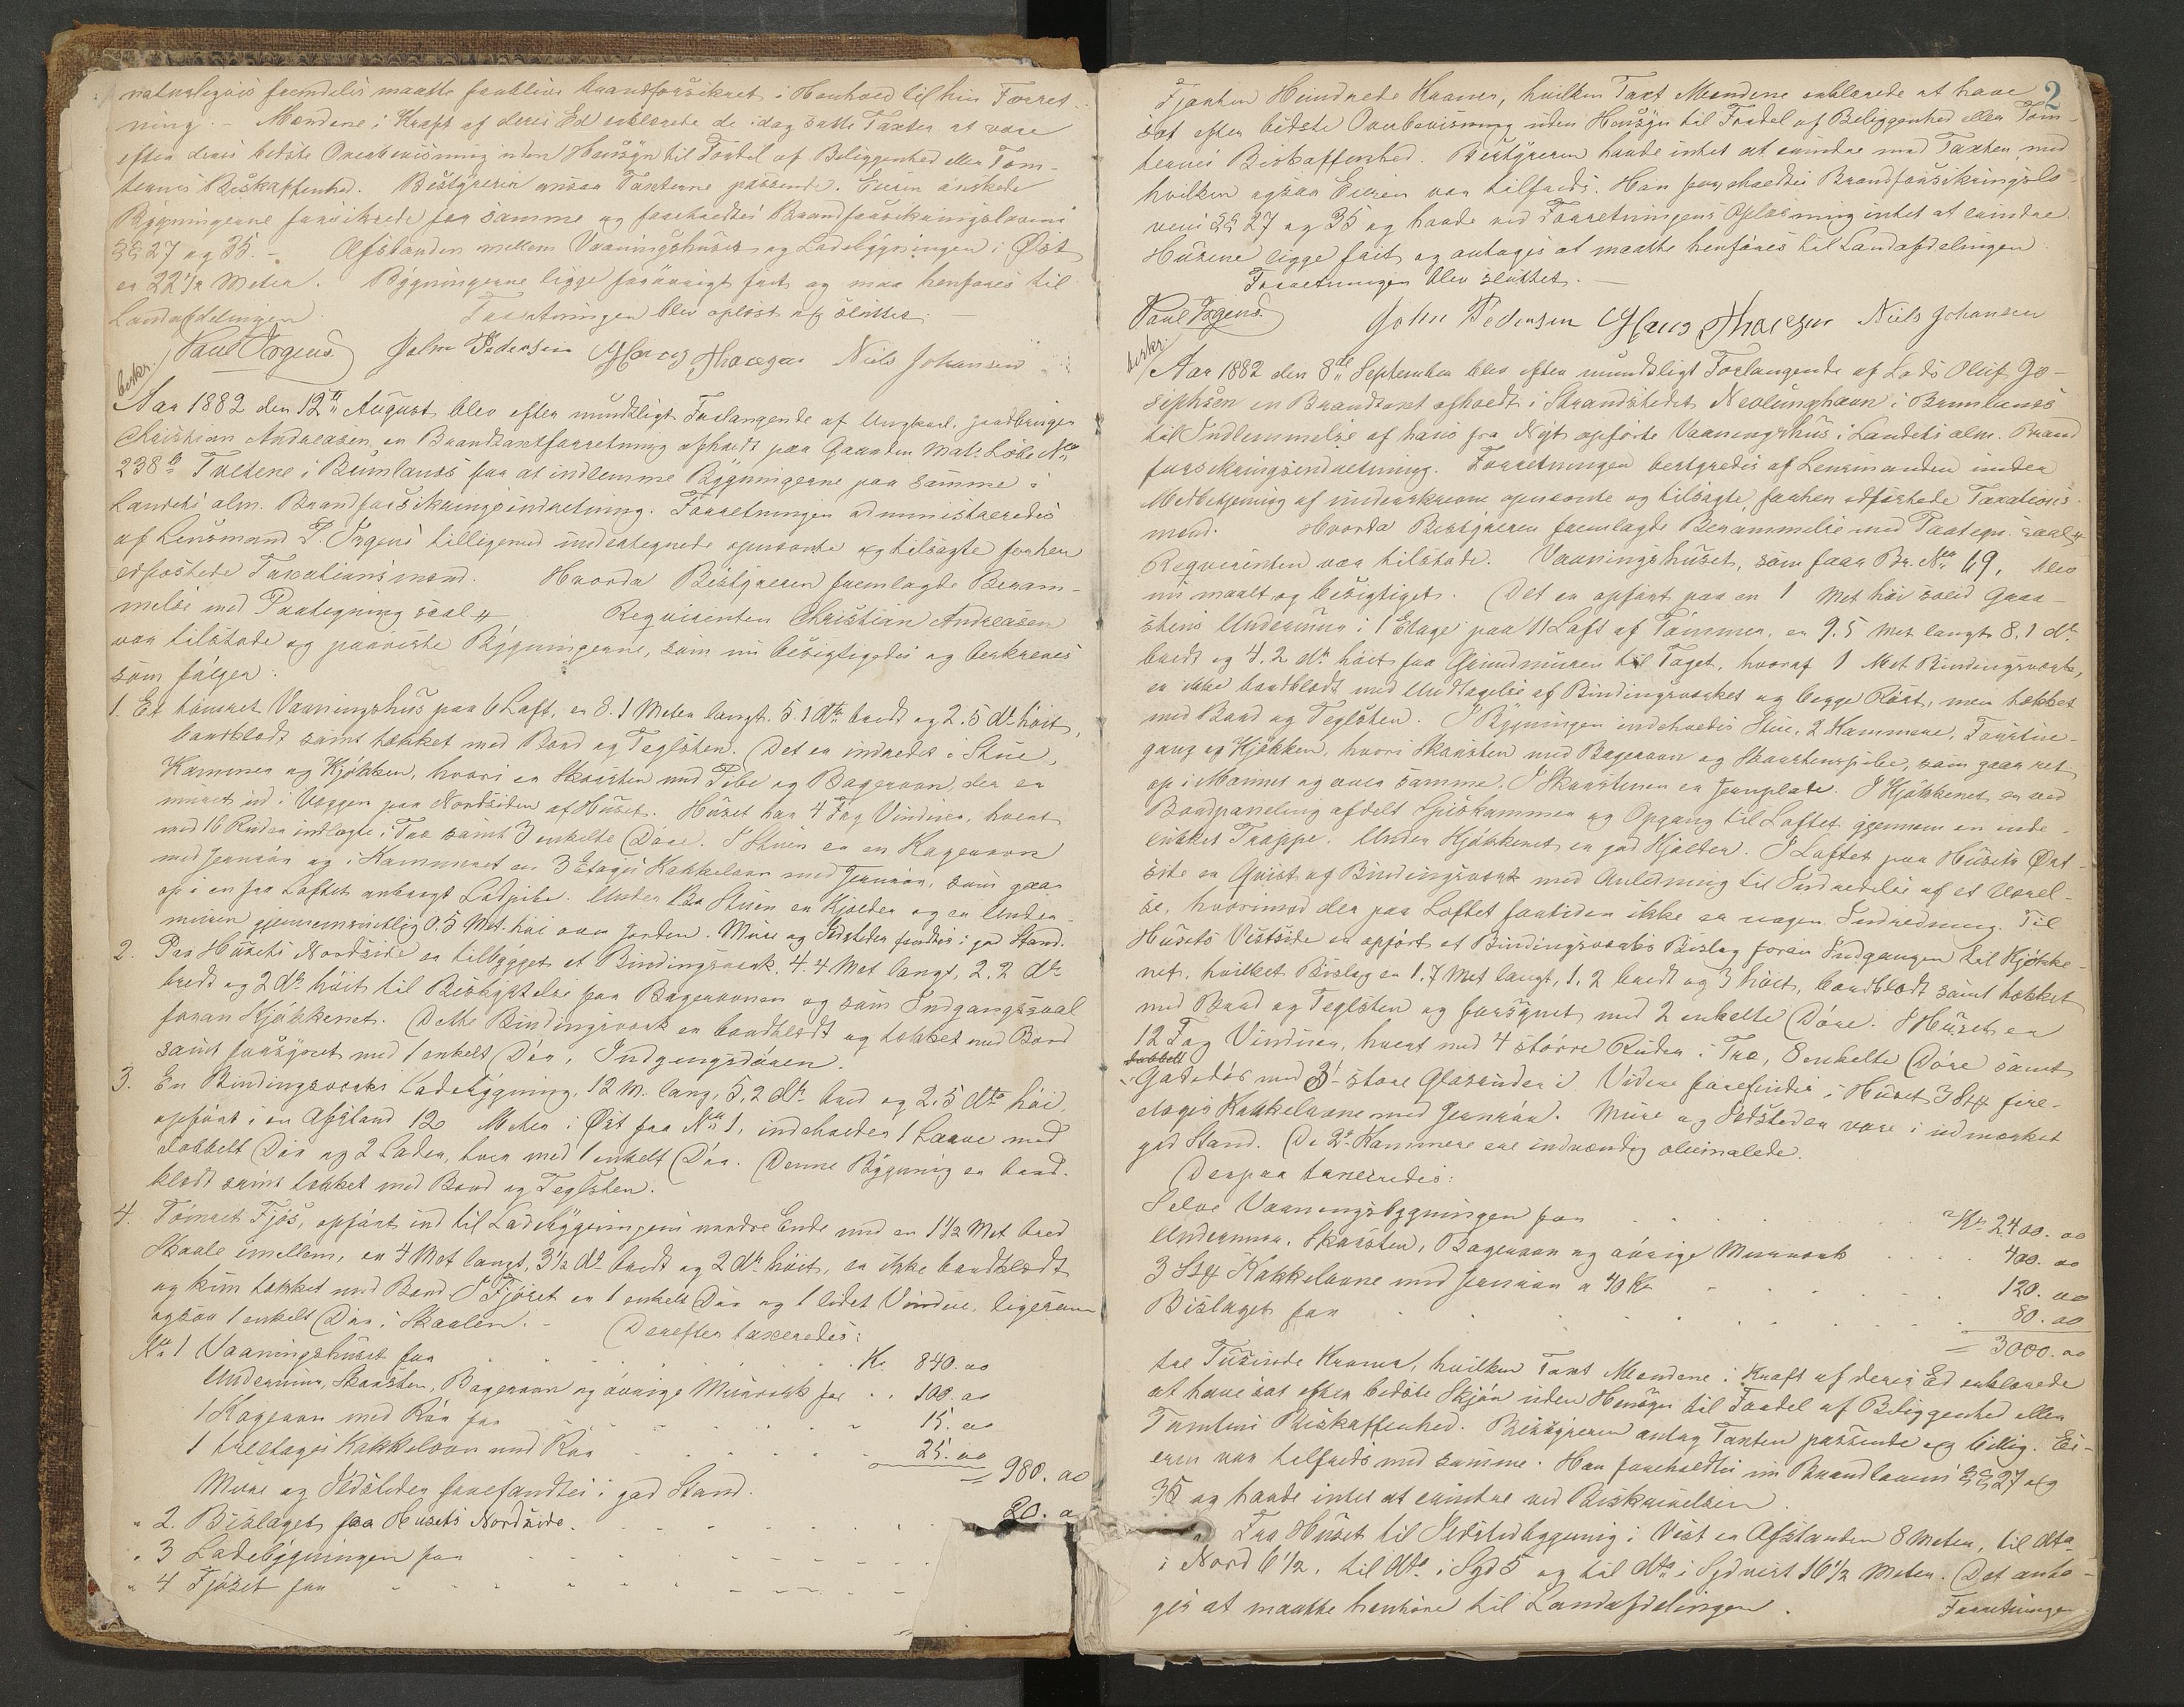 naturligvis fremdeles maatte forblive brandforsikret i Henhold til hin Forret-
ning. - Mændene i Kraft af deres Ed erklærede de idag satte Taxter at være
efter deres bedste Overbevisning uden Hensyn til Fordel af Beliggenhed eller Tom-
ternes Beskaffenhed. Bestyreren ansaa Taxterne passende. Eieren ønskede
Bygningerne forsikrede for samme og foreholdtes Brandforsikringslovens
§§ 27 og 35. - Afstanden mellem Vaaningshuset og Ladebygningen i Øst
er 22½ Meter. Bygningerne ligge forøvrigt frit og maa henføres til
Landafdelingen. Forretningen blev oplæst og sluttet. -
Paul Irgens. John Pedersen Niels Johansen
beskr.
Aar 1882 den 12te August blev efter mundtligt Forlangende af Ungkarl, gaardbruger
Christian Andreasen en Brandtaxtforretning afholdt paa Gaarden Matr. Løbe No
238b Tveidene i Brunlanæs for at indlemme Bygningerne paa samme i
Landets alm. Brandforsikringsindretning. Forretningen administreredes
af Lensmand P. Irgens tilligemed undertegnede opnævnte og tilsagte forhen
edfæstede Taxationsmænd. Hvorda Bestyreren fremlagde Beram-
melse med Paategning saal. Reqvirenten Christian Andreasen
var tilstede og paaviste Bygningerne, som nu besigtigedes og beskreves
som følger:
1. Et tømret Vaaningshus paa 6 Laft, er 8.1 Meter langt, 5.1 dto bredt og 2.5 do høit,
bordklædt samt tækket med Bord og Teglsten. Det er indredet i Stue,
Kammer og Kjøkken, hvori er Skorsten med Pibe og Bagerovn, der er
muret ud i Væggen paa Nordsiden af Huset. Huset har 4 Fag Vinduer, hvert
med 16 Ruder indlagte i Træ samt 3 enkelte Døre. I Stuen er en Kogeovn
med Jernrør og i Kammeret en 3 Etages Kakkelovn med Jernrør, som gaar
op i en fra Loftet anbragt Lodpibe. Under Stuen er Kjælder og er Under-
muren gjennemsnitlig 0.5 Met. høi over Jorden. Mure og Ildsteder fandtes i god Stand.
2. Paa Husets Nordside er tilbygget et Bindingsværk, 4.4 Met langt, 2.2 dto
bredt og 2 do høit til Beskyttelse for Bagerovnen og som Indgangssval
foran Kjøkkenet. Dette Bindingsværk er bordklædt og tækket med Bord
samt forsynet med 1 enkelt Dør, Indgangsdøren.
3. En Bindingsværks Ladebygning, 12 M. lang, 5,2 do bred og 2.5 dto høi,
opført i en Afstand 12 Meter i Øst fra No 1, indeholder 1 Laave med
dobbelt Dør og 2 Lader, hver med 1 enkelt Dør. Denne Bygning er bord-
klædt samt tækket med Bord og Teglsten.
4. Tømret Fjøs, opført ind til Ladebygningens nordre Ende med en 1½ Met bred
Skaale imellem, er 4 Met langt, 3½ do bredt og 2 do høit, er ikke bordklædt
og kun tækket med Bord. I Fjøset er 1 enkelt Dør og 1 lidet Vindue, ligesom
ogsaa 1 enkelt Dør i Skaalen. - Derefter taxeredes:
No 1 Vaaningshuset for . . . Kr. 840.00
Undermur, Skorsten, Bagerovn og øvrige Murværk for . . 100.00
1 Kogeovn med Rør for 15.00
1 treetages Kakkelovn med Rør 25.00
= 980.00
Mure og Ildsteder forefandtes i god Stand.
" 2. Bislaget paa Husets Nordside. 20.0
" 3 Ladebygningen for
" 4 Fjøset for
2
Fjorten Hundrede Kroner, hvilken Taxt Mændene erklærede at have
sat efter bedste Overbevisning uden Hensyn til Fordel af Beliggenhed eller Tom-
ternes Beskaffenhed. Bestyreren havde intet at erindre mod Taxten, med
hvilken ogsaa Eieren var tilfreds. Han foreholdtes Brandforsikringslo-
vens §§ 27 og 35 og havde ved Forretningens Oplæsning intet at erindre.
Husene ligge frit og antages at maatte henføres til Landafdelingen.
Forretningen blev sluttet. -
Paul Irgens. John Pedersen Niels Johansen
beskr.
Aar 1882 den 8de September blev efter mundtligt Forlangende af Lods Oluf Jo-
sephsen en Brandtaxt afholdt i Strandstedet Nevlunghavn i Brunlanæs
til Indlemmelse af hans fra Nyt opførte Vaaningshus i Landets alm. Brand
forsikringsindretning. Forretningen bestyredes af Lensmanden under
Medbetjening af underskrevne opnævnte og tilsagte, forhen edfæstede Taxations-
mænd. Hvorda Bestyreren fremlagde Berammelse med Paategn. saal.
Reqvirenten var tilstede. Vaaningshuset, som faar Br. No 69, blev
nu maalt og besigtiget. Det er opført paa en 1 Met høi solid Graa-
stens Undermur i 1 Etage paa 11 Laft af Tømmer, er 9.5 Met langt 8.1 do
bredt og 4.2 do høit fra Grundmuren til Taget, hvoraf 1 Met Bindingsværk,
er ikke bordklædt med Undtagelse af Bindingsværket og begge Røst, men tækket
med Bord og Teglsten. I Bygningen indeholdes Stue, 2 Kammere, Forstue-
gang og Kjøkken, hvori Skorsten med Bagerovn og Skorstenspibe, som gaar ret
op i Mønnet og over samme. I Skorstenen er Jernplade. I Kjøkkenet er ved
Bordpaneling afdelt Spiskammer og Opgang til Loftet gjennem en inde-
lukket Trappe. Under Kjøkkenet er god Kjælder. I Loftet paa Husets Øst-
side er Qvist af Bindingsværk med Anledning til Indredelse af et Værel-
se, hvorimod der paa Loftet fortiden ikke er nogen Indredning. Til
Husets Vestside er opført et Bindingsværks Bislag foran Indgangen til Kjøkke-
net, hvilket Bislag er 1.7 Met langt, 1.2 bredt og 3 høit, bordklædt samt tækket
med Bord og Teglsten og forsynet med 2 enkelte Døre. I Huset er
12 Fag Vinduer, hvert med 4 større Ruder i Træ, 8 enkelte Døre samt
dobbelt
Gadedør med 3 store Glasruder i. Videre forefindes i Huset 3 Stk fire-
etages Kakkelovne med Jernrør. Mure og Ildsteder vare i udmærket
god Stand. De 2de Kammere ere indvendig oliemalede.
Derpaa taxeredes:
Selve Vaaningsbygningen for Kr. 2400.00
Undermur, Skorsten, Bagerovn og øvrige Murværk . . . 400.00
3 Stk Kakkelovne med Jernrør a 40 Kr 120.00
Bislaget for 80.00
= 3000.00
tre Tusinde Kroner, hvilken Taxt Mændene i Kraft af deres Ed erklærede
at have sat efter bedste Skjøn uden Hensyn til Fordel af Beliggenhed eller
Tomtens Beskaffenhed. Bestyreren antog Taxten passende og billig. Ei-
eren var tilfreds med samme. Han foreholdtes nu Brandlovens §§ 27 og
35 og havde intet at erindre ved Beskrivelsen.
Fra Huset til Ildstedbygning i Vest er Afstanden 8 Meter, til dto
i Nord 6½, til dto i Syd 5 og til dto i Sydvest 16½ Meter. Det anta-
ges at maatte henhøre til Landafdelingen.
Forretningen